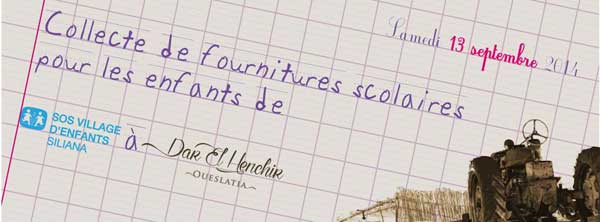 Samedi 13 septembre 2014
Collecte de fournitures scolaires
pour les enfants de
SOS VILLAGE
D'ENFANTS
SILIANA
à Dar El Henchir
OUESLATIA